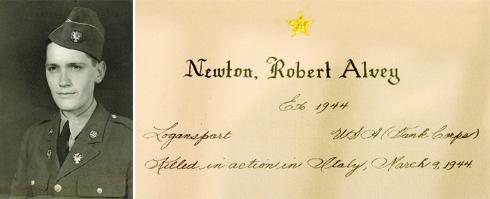 Newton, Robert Alvey
Ex 1944
Logansport USA (Tank Corps)
Killed in action in Italy, March 9, 1944.